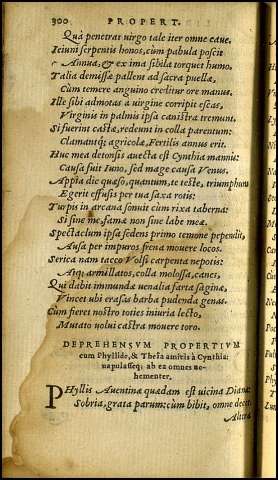 300 PROPERT.
Quà penetrat virgo tale iter omne caue.
Ieiuni serpentis honos, cùm pabula poscit
Annua, & ex ima sibila torquet humo.
Talia demissæ pallent ad sacra puellæ,
Cùm temere anguino creditur ore manus.
Ille sibi admotas a uirgine corripit escas,
Virginis in palmis ipsa canistra tremunt.
Si fuerint castæ, redeunt in colla parentum:
Clamantq; agricolæ, Fertilis annus erit.
Huc mea detonsis auecta est Cynthia mannis:
Causa fuit Iuno, sed mage causa Venus.
Appia dic quæso, quantum, te teste, triumphum
Egerit effusis per tua saxa rotis:
Turpis in arcana sonuit cùm rixa taberna:
Si sine me, famæ non sine labe meæ.
Spectaclum ipsa sedens primo temone pependit,
Ausa per impuros frena mouere locos.
Serica nam tacco Volsi carpenta nepotis:
Atq; armillatos, colla molossa, canes,
Qui dabit immundæ uenalia fata saginæ,
Vincet ubi erasas barba pudenda genas.
Cum fieret nostro toties iniuria lecto,
Mutato uolui castra mouere toro.
DEPREHENSVM PROPERTIVM
cum Phyllide, & Theïa amicis à Cynthia:
uapulasseq; ab ea omnes ue-
hementer.
PHyllis Auentinæ quædam est uicina Dianæ
Sobria, grata parum: cùm bibit, omne decet
Altera